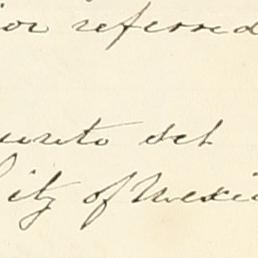 ior referred
uento del
City of Mexi